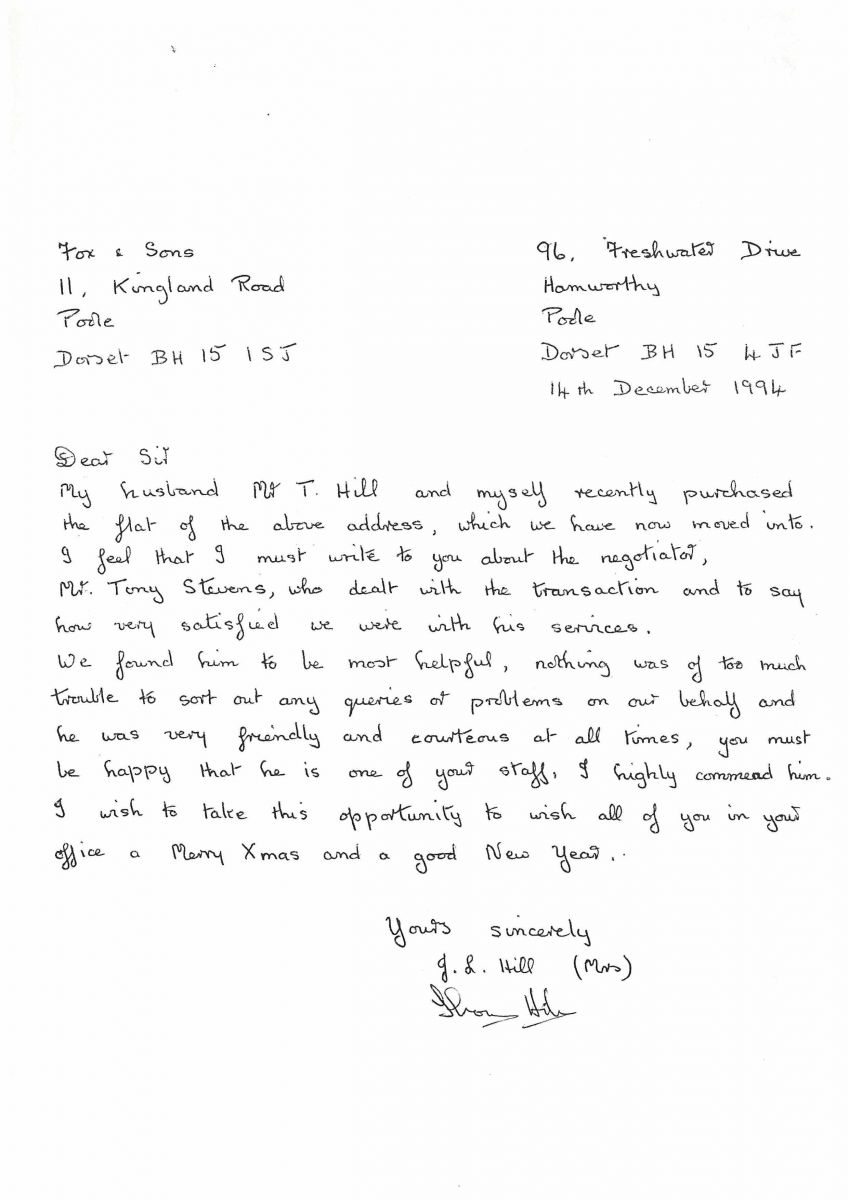 Fox & Sons
11, Kingland Road
Poole
Dorset BH 15 1SJ
96, Freshwater Drive
Hamworthy
Poole
Dorset BH 15 4JF
14th December 1994
Dear Sir
My husband Mr T. Hill and myself recently purchased
the flat of the above address, which we have now moved into.
I feel that I must write to you about the negotiator,
Mr. Tony Stevens, who dealt with the transaction and to say
how very satisfied we were with his services.
We found him to be most helpful, nothing was of too much
trouble to sort out any queries or problems on our behalf and
he was very friendly and courteous at all times, you must
be happy that he is one of your staff, I highly commend him.
I wish to take this opportunity to wish all of you in your
office a Merry Xmas and a good New Year..
Yours sincerely
J. L. Hill (Mrs)